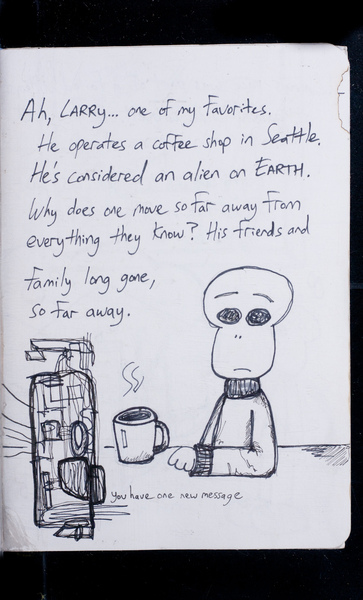 Ah, LARRY... one of my favorites.
He operates a coffee shop in Seattle.
He's considered an alien on EARTH.
Why does one move so far away from
everything they know? His friends and
family long gone,
so far away.
you have one new message